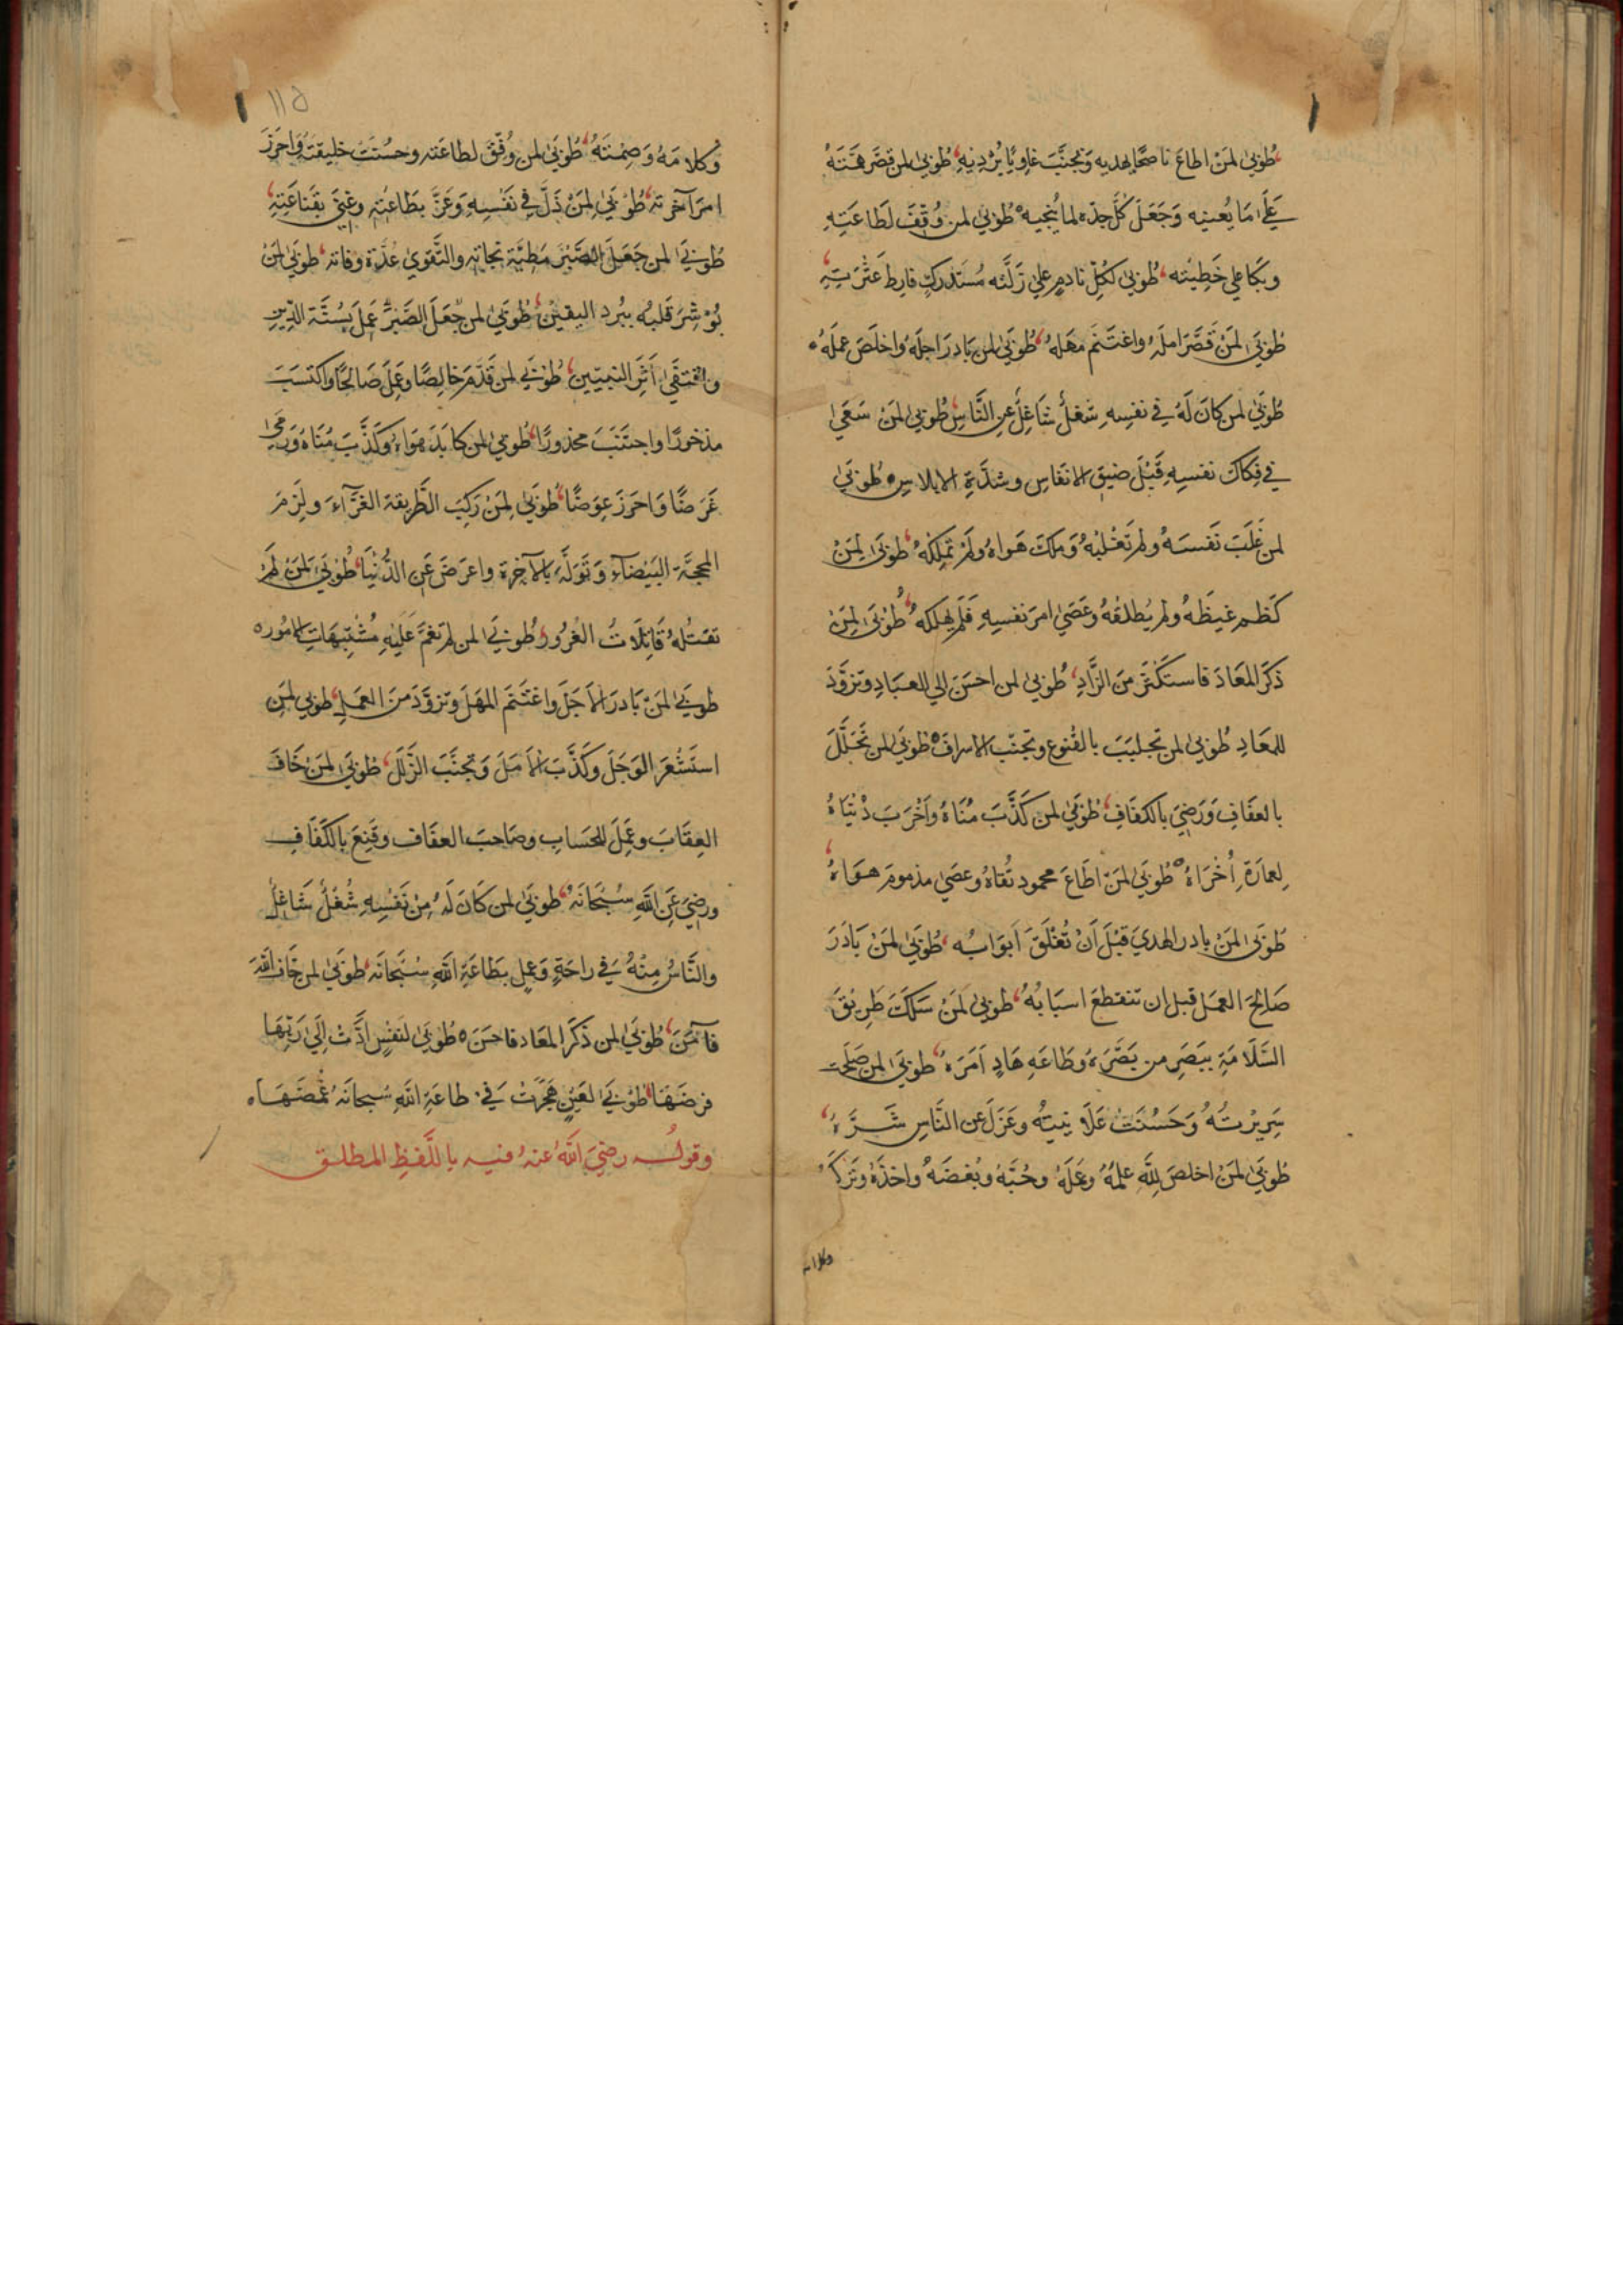 طُوبىٰ لمَنْ اطاعَ ناصحًا يهديه وَتجنَّبَ غاوِيًا يُرْدِيْهِ طُوبىٰ لمن قصَّر همَّتَهُ
عَلَىٰ مَا يُعينه وَجَعَلَ كُلَّ جدّه لما يُنجيه طُوبىٰ لمن وُفِّقَ لطَاعَتِهِ
وبكا علي خَطِيْئته طُوبىٰ لكُلِّ نادمٍ علي زَلَّته مُسْتَدرِكٍ فارِطَ عَثْرَتِهِ
طُوْبىَٰ لمَنْ قَصَّرَ املَهُ واغتنَم مَهَلَهُ طُوبىَٰ لمن بَادرَ اجلَهُ واخلَصَ عملَهُ
طُوْبىٰ لمن كانَ لَهُ في نفسِهِ شغلٌ شَاغِلٌ عنِ النَّاسِ طُوبىٰ لمَنْ سَعَىٰ
في فِكاكِ نفسِهِ قَبْلَ ضيقِ الانفاسِ وشدَّةِ الابلاسِ طُوْبىَٰ
لمن غَلَبَ نَفْسَهُ ولم تَغْلبْهُ وَملكَ هَواهُ ولَمْ تملِكْهُ طُوبىَٰ لِمَنْ
كَظمَ غيظَهُ ولم يُطلقهُ وعَصَىٰ امرَ نفسِهِ فلَمْ يُهلكهُ طُوْبىَٰ لِمَنْ
ذكَرَ المعَادَ فاستكثرَ منَ الزَّادِ طُوبىٰ لمن احسَنَ الي العبَادِ وتزوَّدَ
للمعَادِ طُوبىٰ لمن تجلببَ بالقُنوعِ وتجنّبَ الاسرافَ طُوبىَٰ لمن تحَلَّلَ
بالعفَافِ وَرَضِيَ بالكفَافِ طُوبىَٰ لمن كَذَّبَ مُنَاهُ وأَخْرَبَ دُنْيَاهُ
لِعمارَةِ أُخْرَاهُ طُوبىٰ لمَنْ اطَاعَ محمودَ تُقاهُ وعصَىٰ مذمومَ هوَاهُ
طُوْبىَٰ لمَنْ بادر الهديَ قبْلَ أَنْ تُغْلَقَ أَبوَابُه طُوبىٰ لمَنْ بَادَرَ
صَالحَ العمَلِ قبل ان تنقطعَ اسبَابُهُ طُوبىٰ لمَنْ سَلكَ طرِيْقَ
السَّلَامَةِ ببَصَرِ من بَصَّرَهُ وطَاعَةِ هَادٍ أَمَرَهُ طُوبىَٰ لمن صَلُحَت
سَرِيرتُهُ وَحَسُنَتْ عَلَانيتُه وعَزَلَ عن النَّاسِ شَرَّهُ
طُوبىَٰ لمَنْ اخلصَ لِلَّهِ عِلمَهُ وعمَلَهُ وحُبَّهُ وبُغضَهُ واخذَهُ وترْكَهُ
وكلامه
١١٥
وكلامَهُ وَصِمْتَهُ طُوْبىَٰ لمن وُفِّقَ لطاعَته وحسُنَتْ خليقتُهُ وَاحرَزَ
امرَ آخرته طُوْبىَٰ لِمَنْ ذَلَّ فِي نَفْسِهِ وَعَزَّ بطَاعَتِهِ وغَنِيَ بقَنَاعَتِهِ
طُوْبىَٰ لمن جَعَلَ الصَّبْرَ مَطِيَّةَ نجاتِهِ والتَّقوىٰ عُدَّةَ وفاته طوبىَٰ لمَنْ
بُوْشِرَ قلبُه ببُرد اليقينِ طُوْبىَٰ لمن جَعَلَ الصَّبْرَ عَمِلَ بسُنَّة الدِّينِ
واقتفَىٰ أَثرَ النبيّين طُوْبىَٰ لمن قَدَّمَ خالِصًا وعَمِلَ صَالحًا واكتسَبَ
مذخورًا واجتَنَبَ محذورًا طُوبىٰ لمن كابَدَ هوَاءهُ وكَذَّبَ مُنَاهُ وَرمَىٰ
غَرضًا وَاحرَزَ عِوَضًا طُوْبىَٰ لِمَنْ ركِبَ الطَّريقةَ الغَرَّآءَ ولَزِمَ
المحجَّةَ البَيْضَآءَ وَتَوَلَّهَ بالآخِرة واعرَضَ عَنِ الدُّنْيَا طُوبىَٰ لمَنْ لَمْ
تقتُلْهُ قَاتِلَاتُ الغُرُورِ طُوبىَٰ لمن لم تغمَّ عَلَيْهِ مُشْتَبِهَاتِ الامُورِ
طوبىَٰ لمَنْ بَادرَ الاجَلَ واغْتَنَمَ المهَلَ وتزوَّدَ منَ العمَلِ طوبىٰ لمَنِ
استشْعَرَ الوَجَلَ وكَذَّبَ الأمَلَ وَتجنَّبَ الزَّلَلَ طوبىَٰ لمَنْ خَافَ
العِقَابَ وعَمِلَ للحسَابِ وصَاحبَ العفَافَ وقَنِعَ بالكَفَافِ
ورضيَ عَنِ اللَّهِ سُبْحَانَهُ طُوبىَٰ لمن كَانَ لَهُ مِنْ نَفْسِهِ شُغلٌ شَاغِلٌ
والنَّاسُ مِنْهُ فِي راحَةٍ وَعمِلَ بطَاعَةِ اللَّهِ سُبْحَانَهُ طُوبىَٰ لمن خَافَ اللَّهَ
فآمَنَ طُوبىَٰ لمن ذَكَرَ المعَاد فاحسَنَ طُوبىَٰ لنفسٍ ادَّتْ إلىٰ رَبِّهَا
فرضَهَا طُوْبىَٰ لعَيْنٍ هَجَرَتْ فِي طاعَةِ اللَّهِ سُبحانَهُ غُمْضَهَا
وقولُه رضيَ اللَّهُ عنهُ فيه باللَّفظِ المطلق